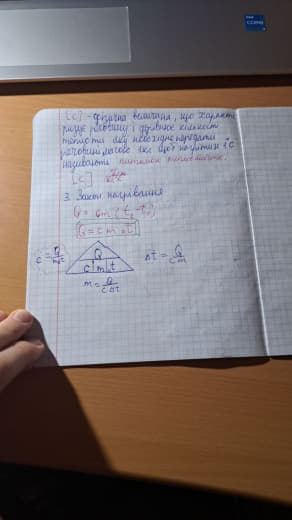 [c] - фізична величина, що характе
ризує речовину і дорівнює кількості
теплоти яку необхідно передати
речовині масою 1кг щоб нагріти на 1°C
називають питомою теплоємністю.
[c]
3. Закон нагрівання
Q = cm (t₂ - t₁)
Q = c m Δt
c = Q/mΔt
Q
c m Δt
Δt = Q/cm
m = Q/cΔt